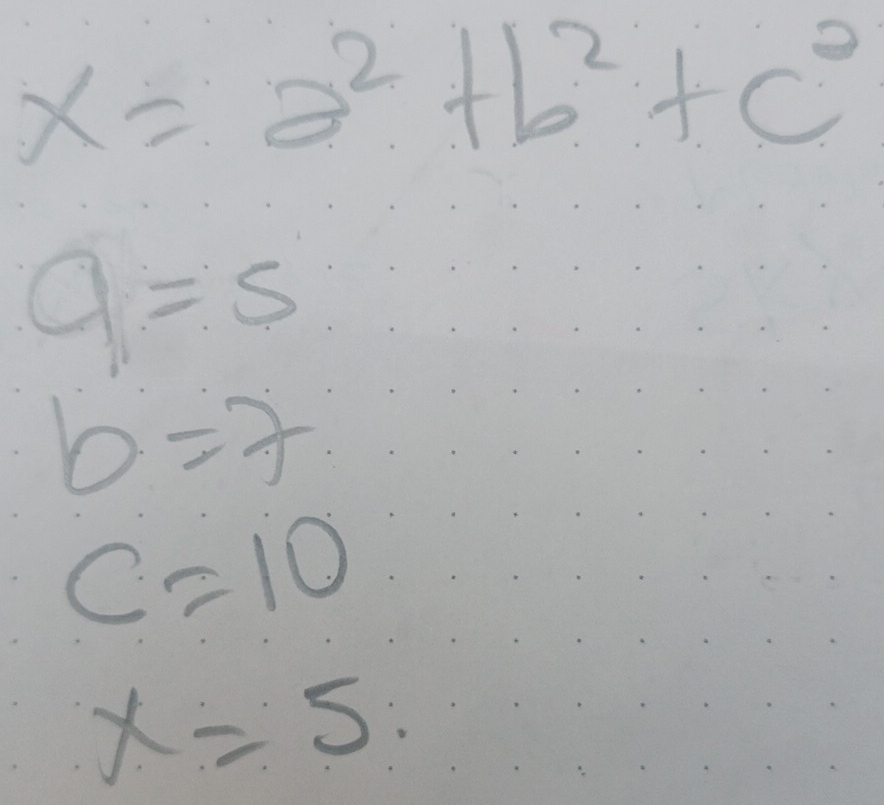 x = a² + b² + c²
a = 5
b = 7
c = 10
x = 5.